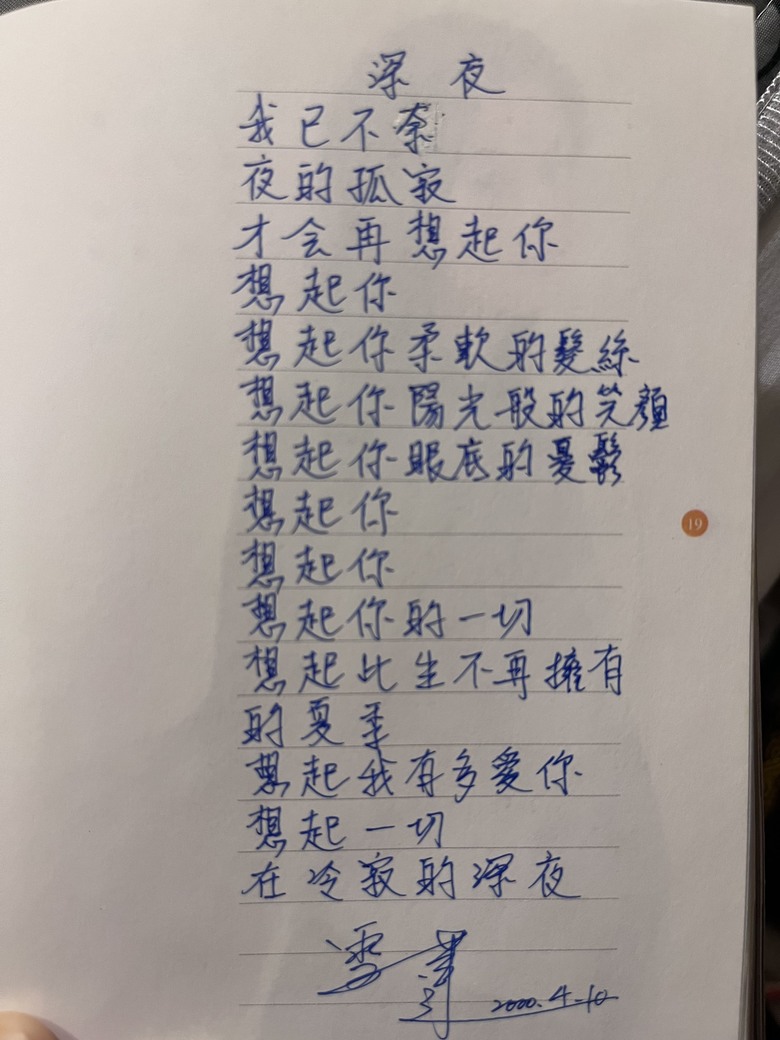 深夜
我已不奈
夜的孤寂
才会再想起你
想起你
想起你柔軟的髮絲
想起你陽光般的笑顏
想起你眼底的憂鬱
想起你
想起你
想起你的一切
想起此生不再擁有
的夏季
想起我有多愛你
想起一切
在冷寂的深夜
2000.4.10
19